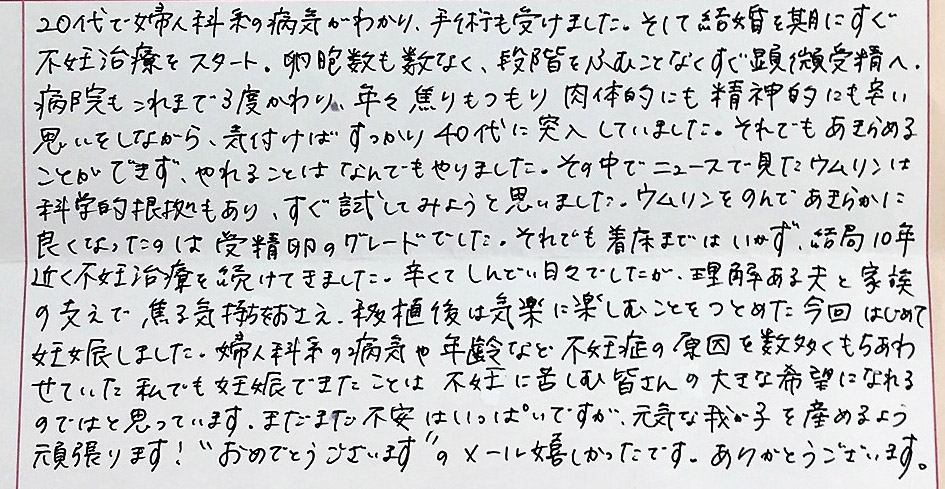 20代で婦人科系の病気がわかり、手術も受けました。そして結婚を期にすぐ
不妊治療をスタート。卵胞数も数なく、段階をふむことなくすぐ顕微受精へ。
病院もこれまで3度かわり、年々焦りもつもり肉体的にも精神的にも辛い
思いをしながら、気付けばすっかり40代に突入していました。それでもあきらめる
ことができず、やれることはなんでもやりました。その中でニュースで見たウムリンは
科学的根拠もあり、すぐ試してみようと思いました。ウムリンをのんであきらかに
良くなったのは受精卵のグレードでした。それでも着床まではいかず、結局10年
近く不妊治療を続けてきました。辛くてしんどい日々でしたが、理解ある夫と家族
の支えで焦る気持ちをおさえ、移植後は気楽に楽しむことをつとめた今回はじめて
妊娠しました。婦人科系の病気や年齢など不妊症の原因を数多くもちあわ
せていた私でも妊娠できたことは不妊に苦しむ皆さんの大きな希望になれる
のではと思っています。まだまだ不安はいっぱいですが、元気な我が子を産めるよう
頑張ります！“おめでとうございます”のメール嬉しかったです。ありがとうございます。